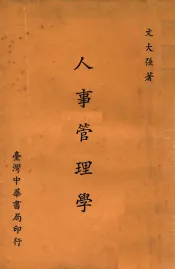 文大強著
人事管理學
臺灣中華書局印行